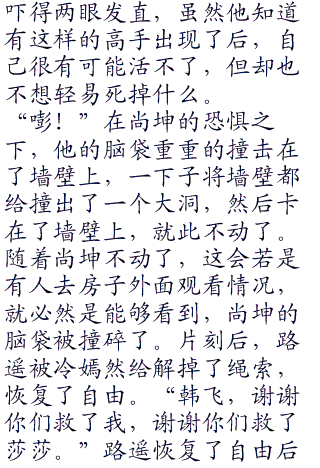 吓得两眼发直，虽然他知道
有这样的高手出现了后，自
己很有可能活不了，但却也
不想轻易死掉什么。
“嘭！”在尚坤的恐惧之
下，他的脑袋重重的撞击在
了墙壁上，一下子将墙壁都
给撞出了一个大洞，然后卡
在了墙壁上，就此不动了。
随着尚坤不动了，这会若是
有人去房子外面观看情况，
就必然是能够看到，尚坤的
脑袋被撞碎了。片刻后，路
遥被冷嫣然给解掉了绳索，
恢复了自由。“韩飞，谢谢
你们救了我，谢谢你们救了
莎莎。”路遥恢复了自由后